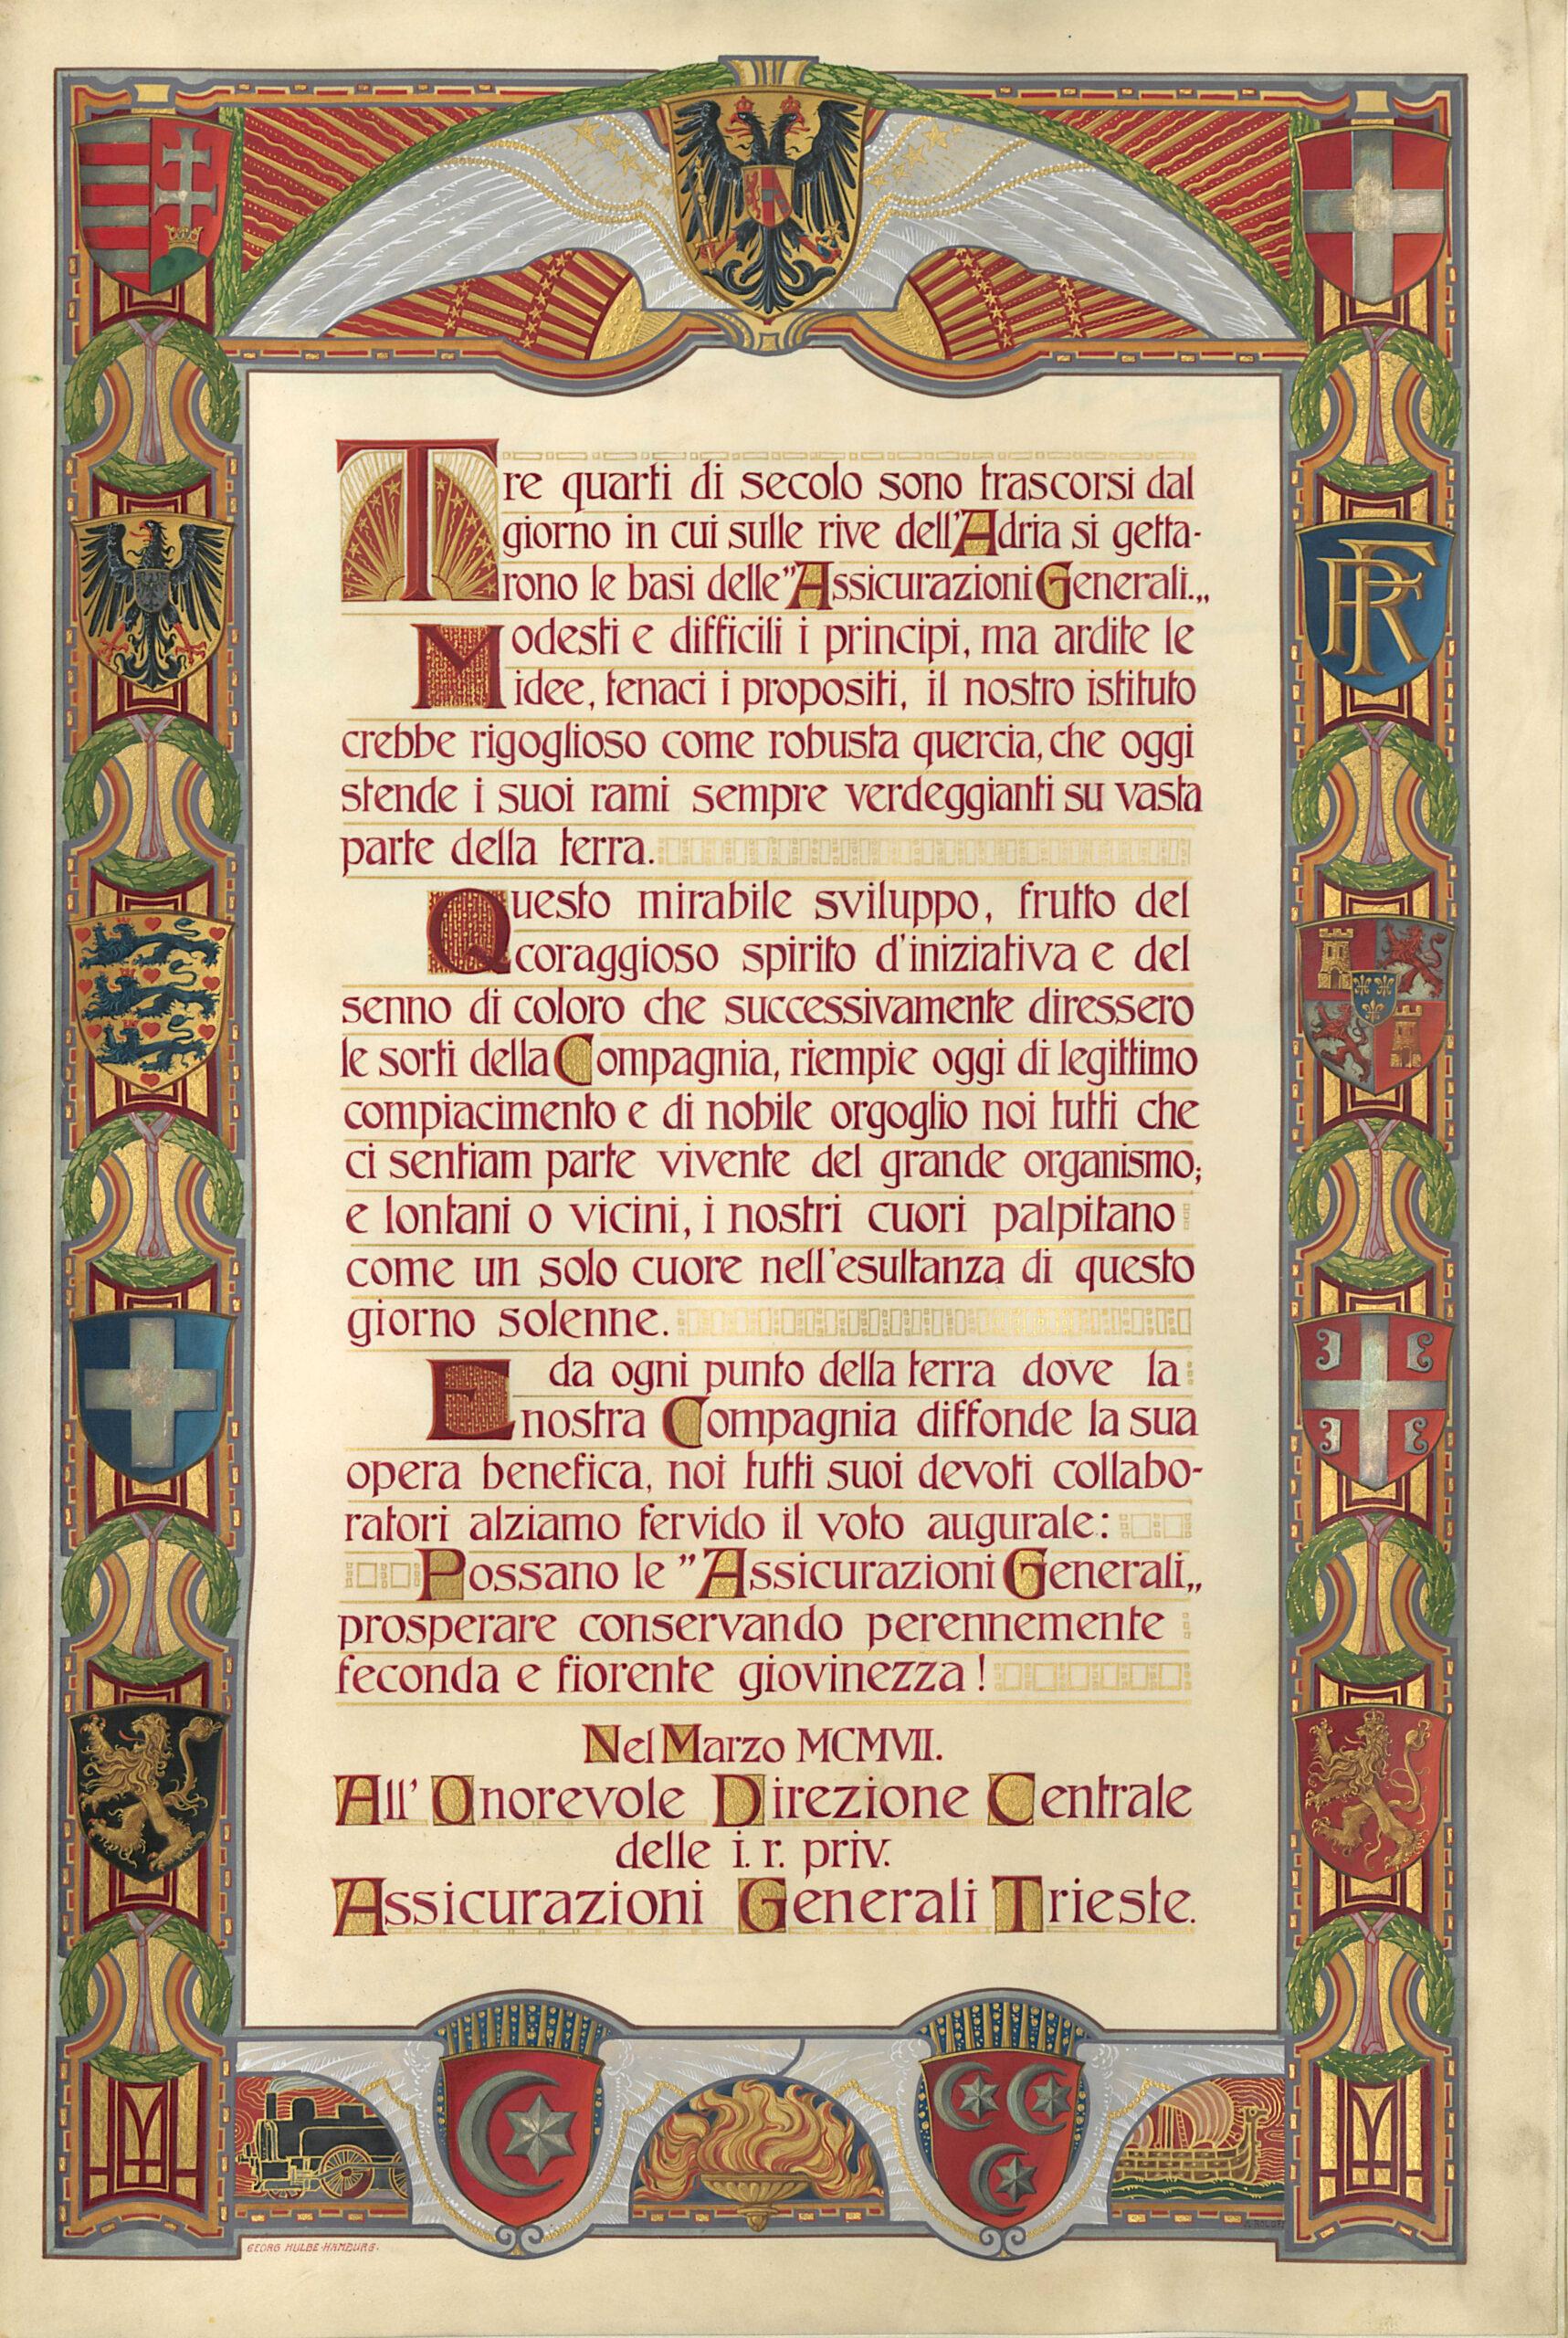 Tre quarti di secolo sono trascorsi dal
giorno in cui sulle rive dell'Adria si getta-
rono le basi delle "Assicurazioni Generali.„
Modesti e difficili i principi, ma ardite le
idee, tenaci i propositi, il nostro istituto
crebbe rigoglioso come robusta quercia, che oggi
stende i suoi rami sempre verdeggianti su vasta
parte della terra.
Questo mirabile sviluppo, frutto del
coraggioso spirito d'iniziativa e del
senno di coloro che successivamente diressero
le sorti della Compagnia, riempie oggi di legittimo
compiacimento e di nobile orgoglio noi tutti che
ci sentiam parte vivente del grande organismo;
e lontani o vicini, i nostri cuori palpitano
come un solo cuore nell'esultanza di questo
giorno solenne.
E da ogni punto della terra dove la
nostra Compagnia diffonde la sua
opera benefica, noi tutti suoi devoti collabo-
ratori alziamo fervido il voto augurale:
Possano le "Assicurazioni Generali„
prosperare conservando perennemente
feconda e fiorente giovinezza!
Nel Marzo MCMVII.
All' Onorevole Direzione Centrale
delle i. r. priv.
Assicurazioni Generali Trieste.
RF
GEORG HULBE·HAMBURG.